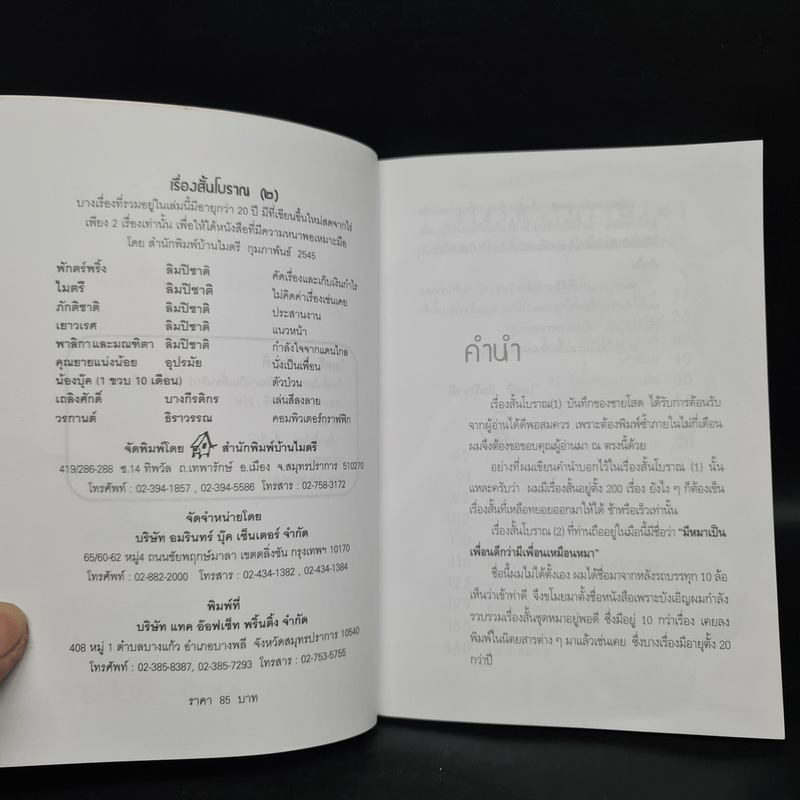 เรื่องสั้นโบราณ (๒)
บางเรื่องที่รวมอยู่ในเล่มนี้มีอายุกว่า 20 ปี มีที่เขียนขึ้นใหม่สดจากไร่
เพียง 2 เรื่องเท่านั้น เพื่อให้ได้หนังสือที่มีความหนาพอเหมาะมือ
โดย สำนักพิมพ์บ้านไมตรี กุมภาพันธ์ 2545
พักตร์พริ้ง ลิมปิชาติ คัดเรื่องและเก็บเงินกำไร
ไมตรี ลิมปิชาติ ไม่คิดค่าเรื่องเช่นเคย
ภักติชาติ ลิมปิชาติ ประสานงาน
เยาวเรศ ลิมปิชาติ แนวหน้า
พาลิกาและมณฑิตา ลิมปิชาติ กำลังใจจากแดนไกล
คุณยายแน่งน้อย อุปรมัย นั่งเป็นเพื่อน
น้องบุ๊ค (1 ขวบ 10 เดือน) ตัวป่วน
เถลิงศักดิ์ บางกีรติกร เล่นสีลงลาย
วรกานต์ ธิราวรรณ คอมพิวเตอร์กราฟฟิก
จัดพิมพ์โดย สำนักพิมพ์บ้านไมตรี
419/286-288 ซ.14 ทิพวัล ถ.เทพารักษ์ อ.เมือง จ.สมุทรปราการ 510270
โทรศัพท์ : 02-394-1857 , 02-394-5586 โทรสาร : 02-758-3172
จัดจำหน่ายโดย
บริษัท อมรินทร์ บุ๊ค เซ็นเตอร์ จำกัด
65/60-62 หมู่4 ถนนชัยพฤกษ์มาลา เขตตลิ่งชัน กรุงเทพฯ 10170
โทรศัพท์ : 02-882-2000 โทรสาร : 02-434-1382 , 02-434-1384
พิมพ์ที่
บริษัท แทค อ๊อฟเซ็ท พริ้นติ้ง จำกัด
408 หมู่ 1 ตำบลบางแก้ว อำเภอบางพลี จังหวัดสมุทรปราการ 10540
โทรศัพท์ : 02-385-8387, 02-385-7293 โทรสาร : 02-753-5755
ราคา 85 บาท
คำนำ
เรื่องสั้นโบราณ(1) บันทึกของชายโสด ได้รับการต้อนรับ
จากผู้อ่านได้ดีพอสมควร เพราะต้องพิมพ์ซ้ำภายในไม่กี่เดือน
ผมจึงต้องขอขอบคุณผู้อ่านมา ณ ตรงนี้ด้วย
อย่างที่ผมเขียนคำนำบอกไว้ในเรื่องสั้นโบราณ (1) นั้น
แหละครับว่า ผมมีเรื่องสั้นอยู่ตั้ง 200 เรื่อง ยังไง ๆ ก็ต้องเข็น
เรื่องสั้นที่เหลือทยอยออกมาให้ได้ ช้าหรือเร็วเท่านั้น
เรื่องสั้นโบราณ (2) ที่ท่านถืออยู่ในมือนี้มีชื่อว่า "มีหมาเป็น
เพื่อนดีกว่ามีเพื่อนเหมือนหมา"
ชื่อนี้ผมไม่ได้ตั้งเอง ผมได้ชื่อมาจากหลังรถบรรทุก 10 ล้อ
เห็นว่าเข้าท่าดี จึงขโมยมาตั้งชื่อหนังสือเพราะบังเอิญผมกำลัง
รวบรวมเรื่องสั้นชุดหมาอยู่พอดี ซึ่งมีอยู่ 10 กว่าเรื่อง เคยลง
พิมพ์ในนิตยสารต่าง ๆ มาแล้วเช่นเคย ซึ่งบางเรื่องมีอายุตั้ง 20
กว่าปี